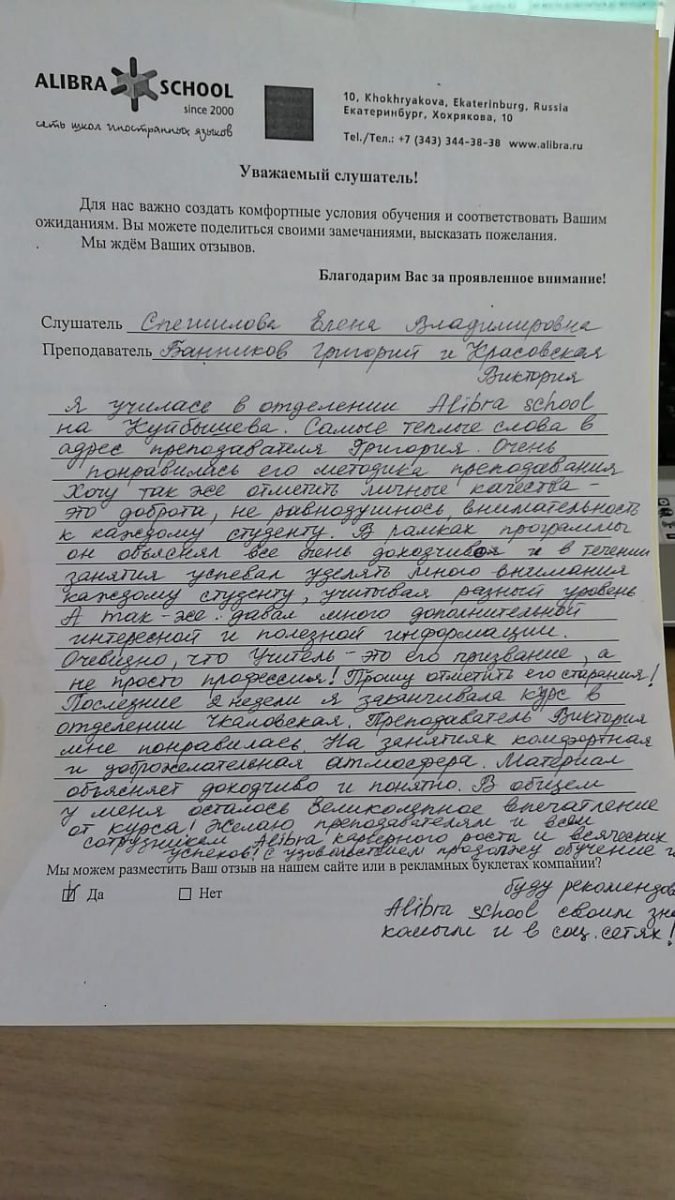 ALIBRA SCHOOL
since 2000
сеть школ иностранных языков
10, Khokhryakova, Ekaterinburg, Russia
Екатеринбург, Хохрякова, 10
Tel./Тел.: +7 (343) 344-38-38 www.alibra.ru
Уважаемый слушатель!
Для нас важно создать комфортные условия обучения и соответствовать Вашим
ожиданиям. Вы можете поделиться своими замечаниями, высказать пожелания.
Мы ждём Ваших отзывов.
Благодарим Вас за проявленное внимание!
Слушатель Спешилова Елена Владимировна
Преподаватель Банников Григорий и Красовская
Виктория
Я училась в отделении Alibra school
на Куйбышева. Самые теплые слова в
адрес преподавателя Григория. Очень
понравились его методика преподавания
Хочу так же отметить личные качества –
это доброта, не равнодушность, внимательность
к каждому студенту. В рамках программы
он объяснял все очень доходчиво и в течении
занятия успевал уделять много внимания
каждому студенту, учитывая разный уровень.
А так-же давал много дополнительной
интересной и полезной информации.
Очевидно, что Учитель – это его призвание, а
не просто профессия! Прошу отметить его старания!
Последние 2 недели я заканчивала курс в
отделении Чкаловская. Преподаватель Виктория
мне понравилась. На занятиях комфортная
и доброжелательная атмосфера. Материал
объясняет доходчиво и понятно. В общем
у меня осталось великолепное впечатление
от курса! Желаю преподавателям и всем
сотрудникам Alibra карьерного роста и всяческих
успехов! С удовольствием продолжу обучение и
Мы можем разместить Ваш отзыв на нашем сайте или в рекламных буклетах компании?
Да Нет
буду рекомендов
Alibra school своим зна
комым и в соц. сетях!